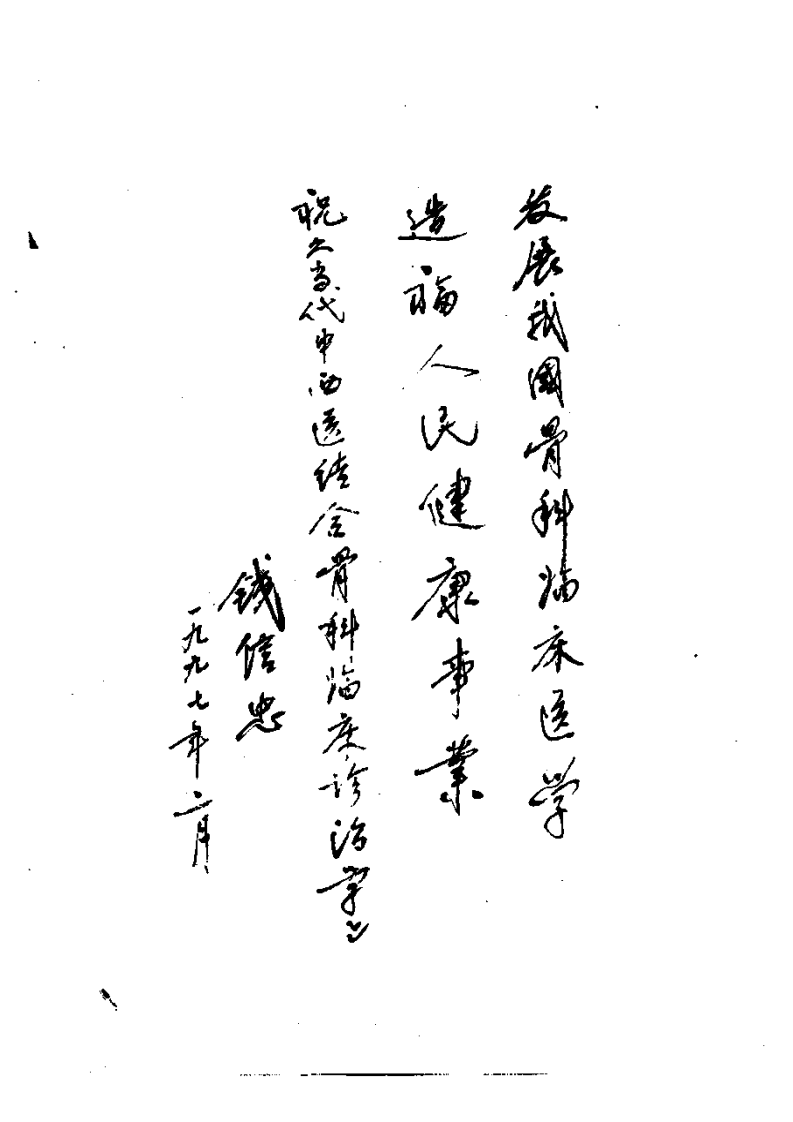 发展我國骨科临床医学
造福人民健康事業
祝《当代中西医结合骨科临床诊治学》
錢信忠
一九九七年二月